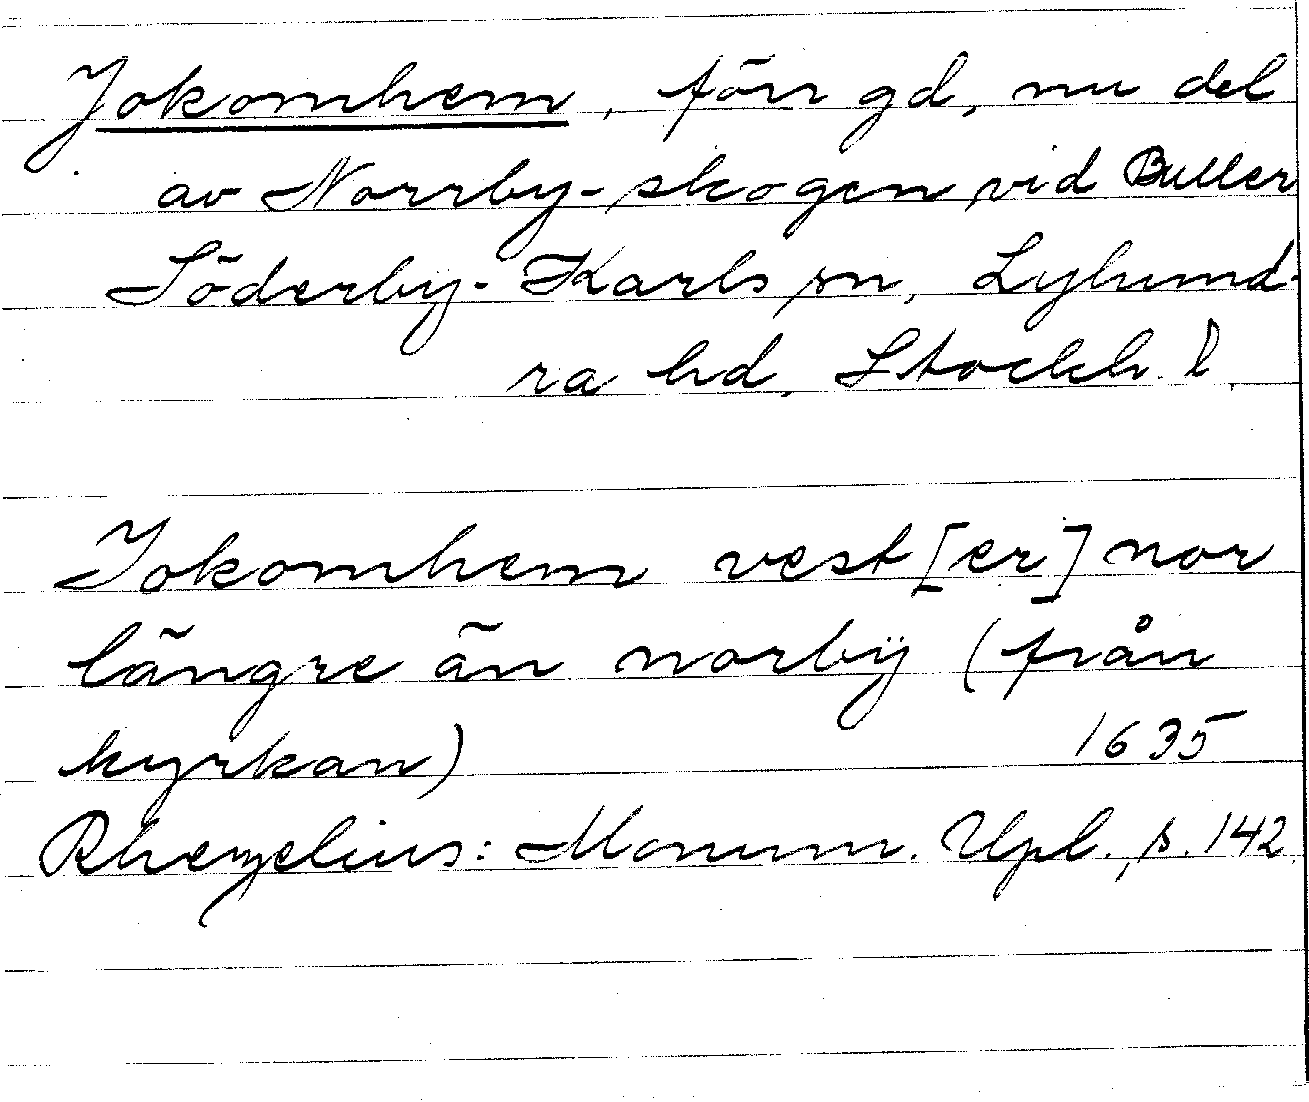 Jokomhem, förr gd, nu del
av Norrby-skogen vid Buller
Söderby-Karls sn, Lyhund-
ra hd, Stockh. l.
Jokomhem vest[er] nor
längre än norbÿ (från
kyrkan) 1635
Rhezelius: Monum. Upl. s. 142